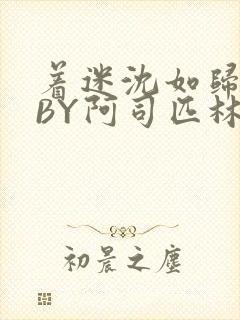 着迷沈如歸
BY阿司匹林
初晨之塵